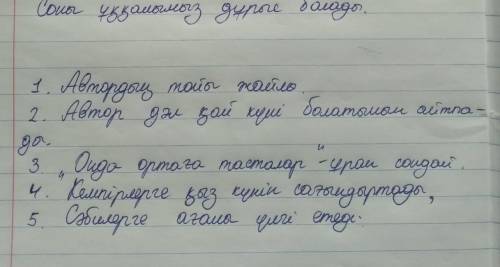 Соны ұққанымыз дұрыс болады.
1. Автордың тойы жайлы.
2. Автор дәл қай күні болатынын айтпа-
ды.
3. „Онда ортаға тасталар" - ұран сондай.
4. Кемпірлерге қыз күнін сағындыртады,
5. Сәбилерге ағаны үлгі етеді.